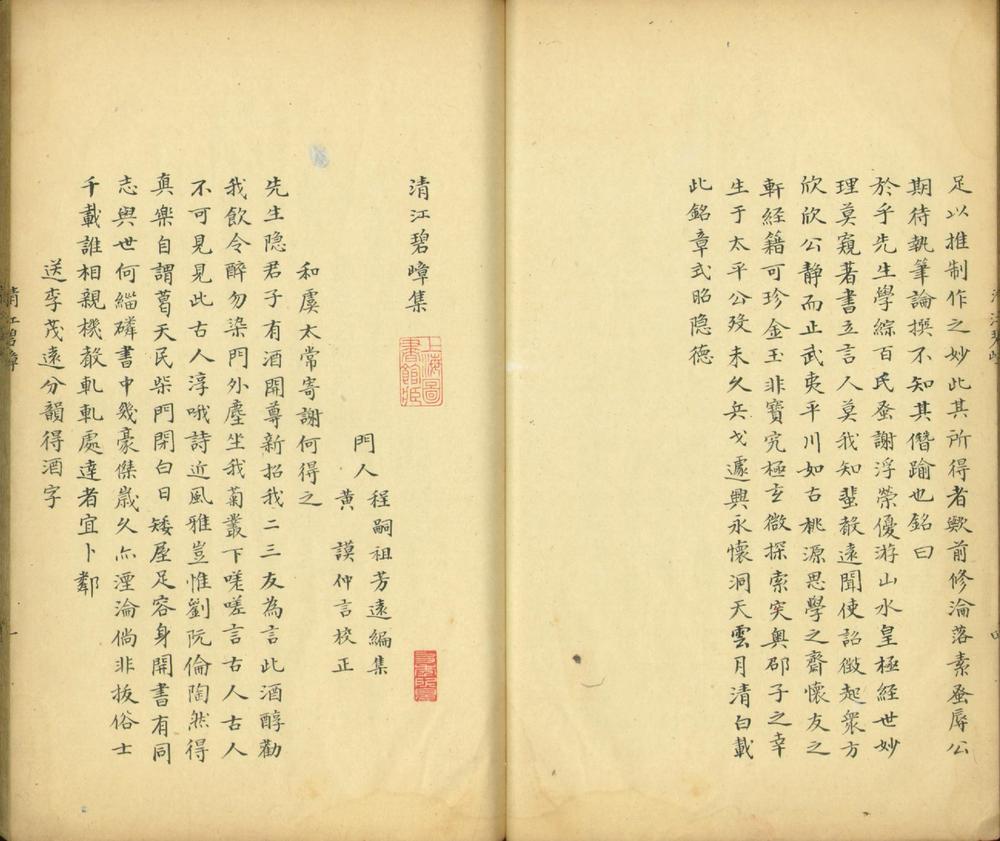 足以推制作之妙此其所得者歟前修淪落素蚤辱公
期待執筆論撰不知其僭踰也銘曰
於乎先生學綜百氏蚤謝浮榮優游山水皇極經世妙
理莫窺著書立言人莫我知蜚聲遠聞使詔徵起衆方
欣欣公静而止武夷平川如古桃源思學之齋懷友之
軒經籍可珍金玉非寶究極玄微探索突奥邵子之幸
生于太平公歿未久兵戈遽興永懷洞天雲月清白載
此銘章式昭隐德
清江碧嶂集
上海圖書館藏
門人
程嗣祖芳遠編集
黄謨仲言校正
和虞太常寄謝何得之
先生隐君子有酒開尊新招我二三友為言此酒醇勸
我飲令醉勿染門外塵坐我菊叢下嗟嗟言古人古人
不可見見此古人淳哦詩近風雅豈惟劉阮倫陶然得
真樂自謂葛天民柴門閉白日矮屋足容身開書有同
志與世何緇磷書中幾豪傑嵗久亦湮淪倘非拔俗士
千載誰相親機聲軋軋處達者宜卜鄰
送李茂遠分韻得酒字
清江碧嶂
一